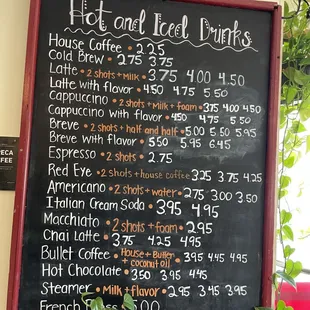 Hot and Iced Drinks
House Coffee • 2.25
Cold Brew • 2.75 3.75
Latte • 2 shots + Milk • 3.75 4.00 4.50
Latte with flavor • 4.50 4.75 5.50
Cappuccino • 2 shots + Milk + foam • 3.75 4.00 4.50
Cappuccino with flavor • 4.50 4.75 5.50
Breve • 2 shots + half and half • 5.00 5.50 5.95
Breve with flavor • 5.50 5.95 6.45
Espresso • 2 shots • 2.75
Red Eye • 2 shots + house coffee 3.25 3.75 4.25
Americano • 2 shots + water • 2.75 3.00 3.50
Italian Cream Soda • 3.95 4.95
Macchiato • 2 shots + foam • 2.95
Chai Latte • 3.75 4.25 4.95
Bullet Coffee • House + Butter + coconut oil • 3.95 4.45 4.95
Hot Chocolate • 3.50 3.95 4.45
Steamer • Milk + flavor • 2.95 3.45 3.95
French